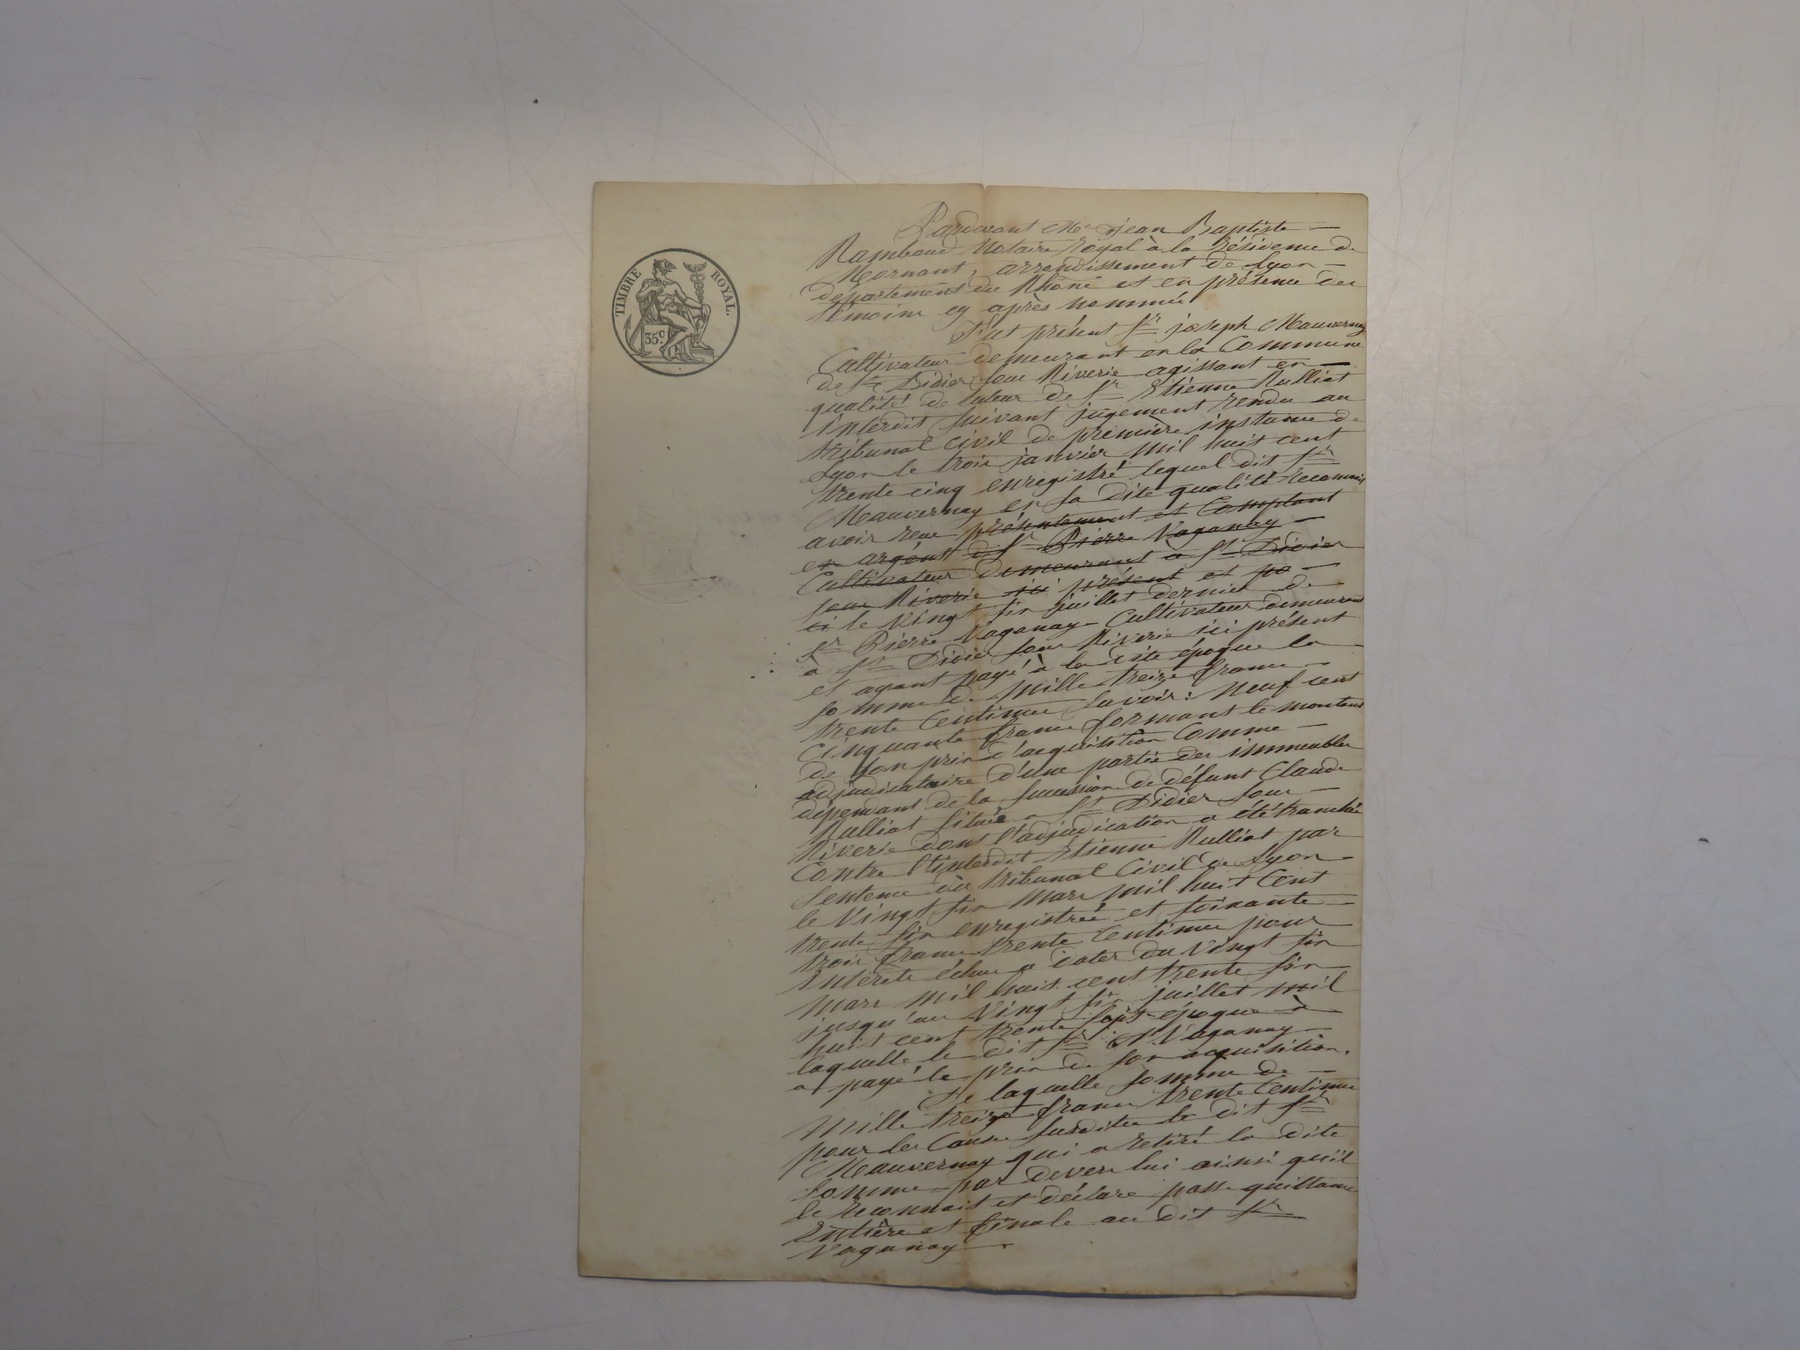 TIMBRE ROYAL.
35c.
Pardevant Me jean Baptiste
Rambaud Notaire royal à la résidence de
Mornant, arrondissement de Lyon
département du Rhône et en présence des
témoins cy après nommés
S'est présent sr joseph Mauvernay
Cultivateur demeurant en la Commune
de St Didier sous Riverie agissant en
qualité de tuteur de sr Etienne Rulliat
interdit suivant jugement rendu au
tribunal civil de première instance de
Lyon le trois janvier mil huit cent
trente cinq enregistré lequel dit sr
Mauvernay en sa dite qualité reconnais
avoir reçu présentement et Comptant
en argent de sr Pierre Vaganay
Cultivateur demeurant à St Didier
sous Riverie ici présent et
le vingt six juillet dernier de
sr Pierre Vaganay Cultivateur demeurant
à St Didier sous Riverie ici présent
et ayant payé à la dite époque la
somme de mille treize francs
trente Centimes savoir: Neuf cent
cinquante francs formant le montant
de son prix d'acquisition Comme
adjudicataire d'une partie des immeubles
dépendant de la succession de défunt Claude
Rulliat situés à St Didier sous
Riverie dont l'adjudication a été tranchée
Contre l'interdit Etienne Rulliat par
sentence du tribunal Civil de Lyon
le vingt six mars mil huit Cent
trente six enregistrée et soixante
trois francs trente Centimes pour
intérêts échus a dater du vingt six
mars mil huit cent trente six
jusqu'au vingt six juillet mil
huit cent trente sept époque à
laquelle le dit sr Vaganay
a payé le prix de son acquisition.
De laquelle somme de
mille treize francs trente Centimes
pour les Causes susdites le dit sr
Mauvernay qui a retiré la dite
somme par devers lui ainsi qu'il
le reconnait et déclare passe quittance
Entière et finale au dit sr
Vaganay